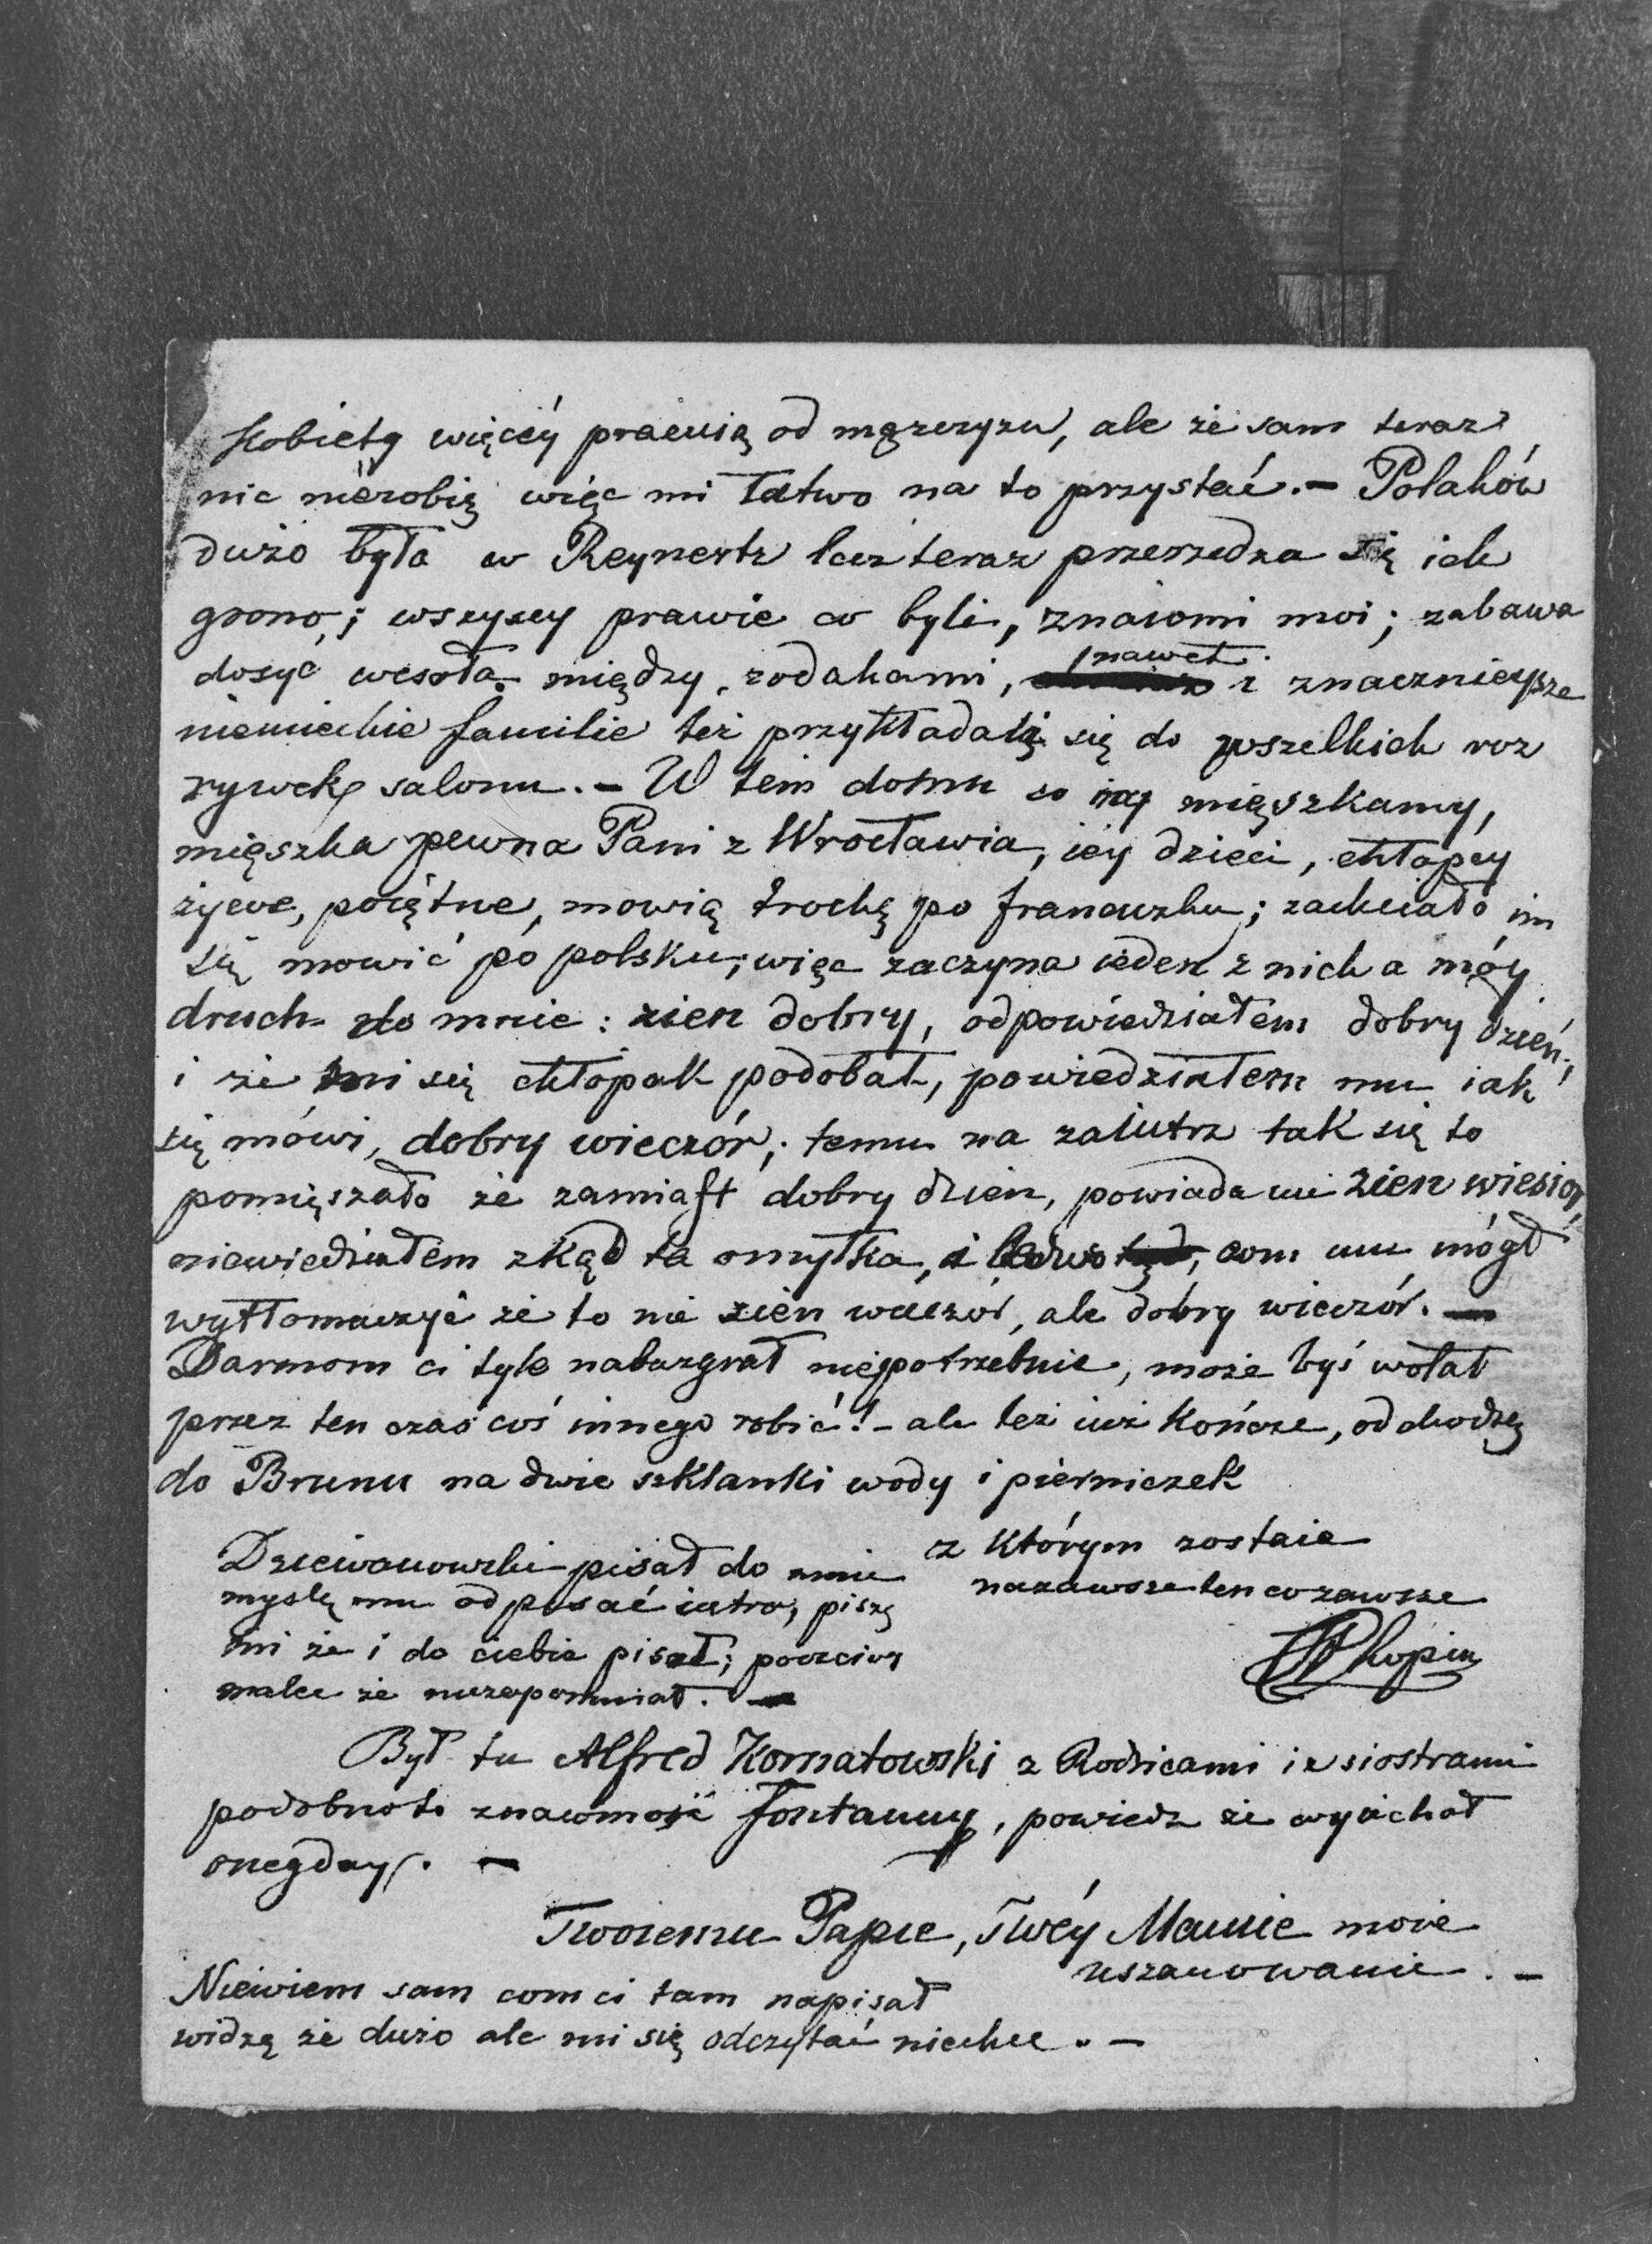 Kobiety więcéy pracuią od męzczyzn, ale że sam teraz
nic nierobię więc mi łatwo na to przystać. – Polaków
dużo było w Reynertz lecz teraz przerzedza się ich
grono; wszyscy prawie co byli, znaiomi moi; zabawa
dosyć wesoła między rodakami, nawet i znacznieysze
niemieckie familie też przykładaią się do wszelkich roz
rywek salonu. – W tem domu co my mięszkamy,
mięszka pewna Pani z Wrocławia, iey dzieci, chłopcy
żywe, poiętne, mowią trochę po francuzku; zachciało im
się mowić po polsku; więc zaczyna ieden z nich a móy
druch do mnie: zien dobry, odpowiedziałem dobry dzień;
i że mi się chłopak podobał, powiedziałem mu iak
się mówi, dobry wieczór; temu na zaiutrz tak się to
pomięszało że zamiast dobry dzien, powiada mi zien wiesior,
niewiedziałem zkąd ta omyłka, i ledwo com mu mógł
wytłomaczyć że to nie zien wieczor, ale dobry wieczór. —
Darmom ci tyle nabazgrał niepotrzebnie, może byś wolał
przez ten czas coś innego robić! – ale też iuż kończe, odchodzę
do Brunu na dwie szklanki wody i pierniczek
z którym zostaie
nazawsze ten co zawsze
FFChopin
Dziewanowski pisał do mnie
myslę mu odpisać iutro, piszę
mi że i do ciebie pisał; poczciwy
malec że niezapomniał. —
Był tu Alfred Kornatowski z Rodzicami i z siostrami
podobnoto znaiomość Fontanny, powiedz że wyiechał
onegday. —
Twoiemu Papie, Twéy Mamie moie
uszanowanie. –
Niewiem sam com ci tam napisał
widzę że dużo ale mi się odczytać niechce. –